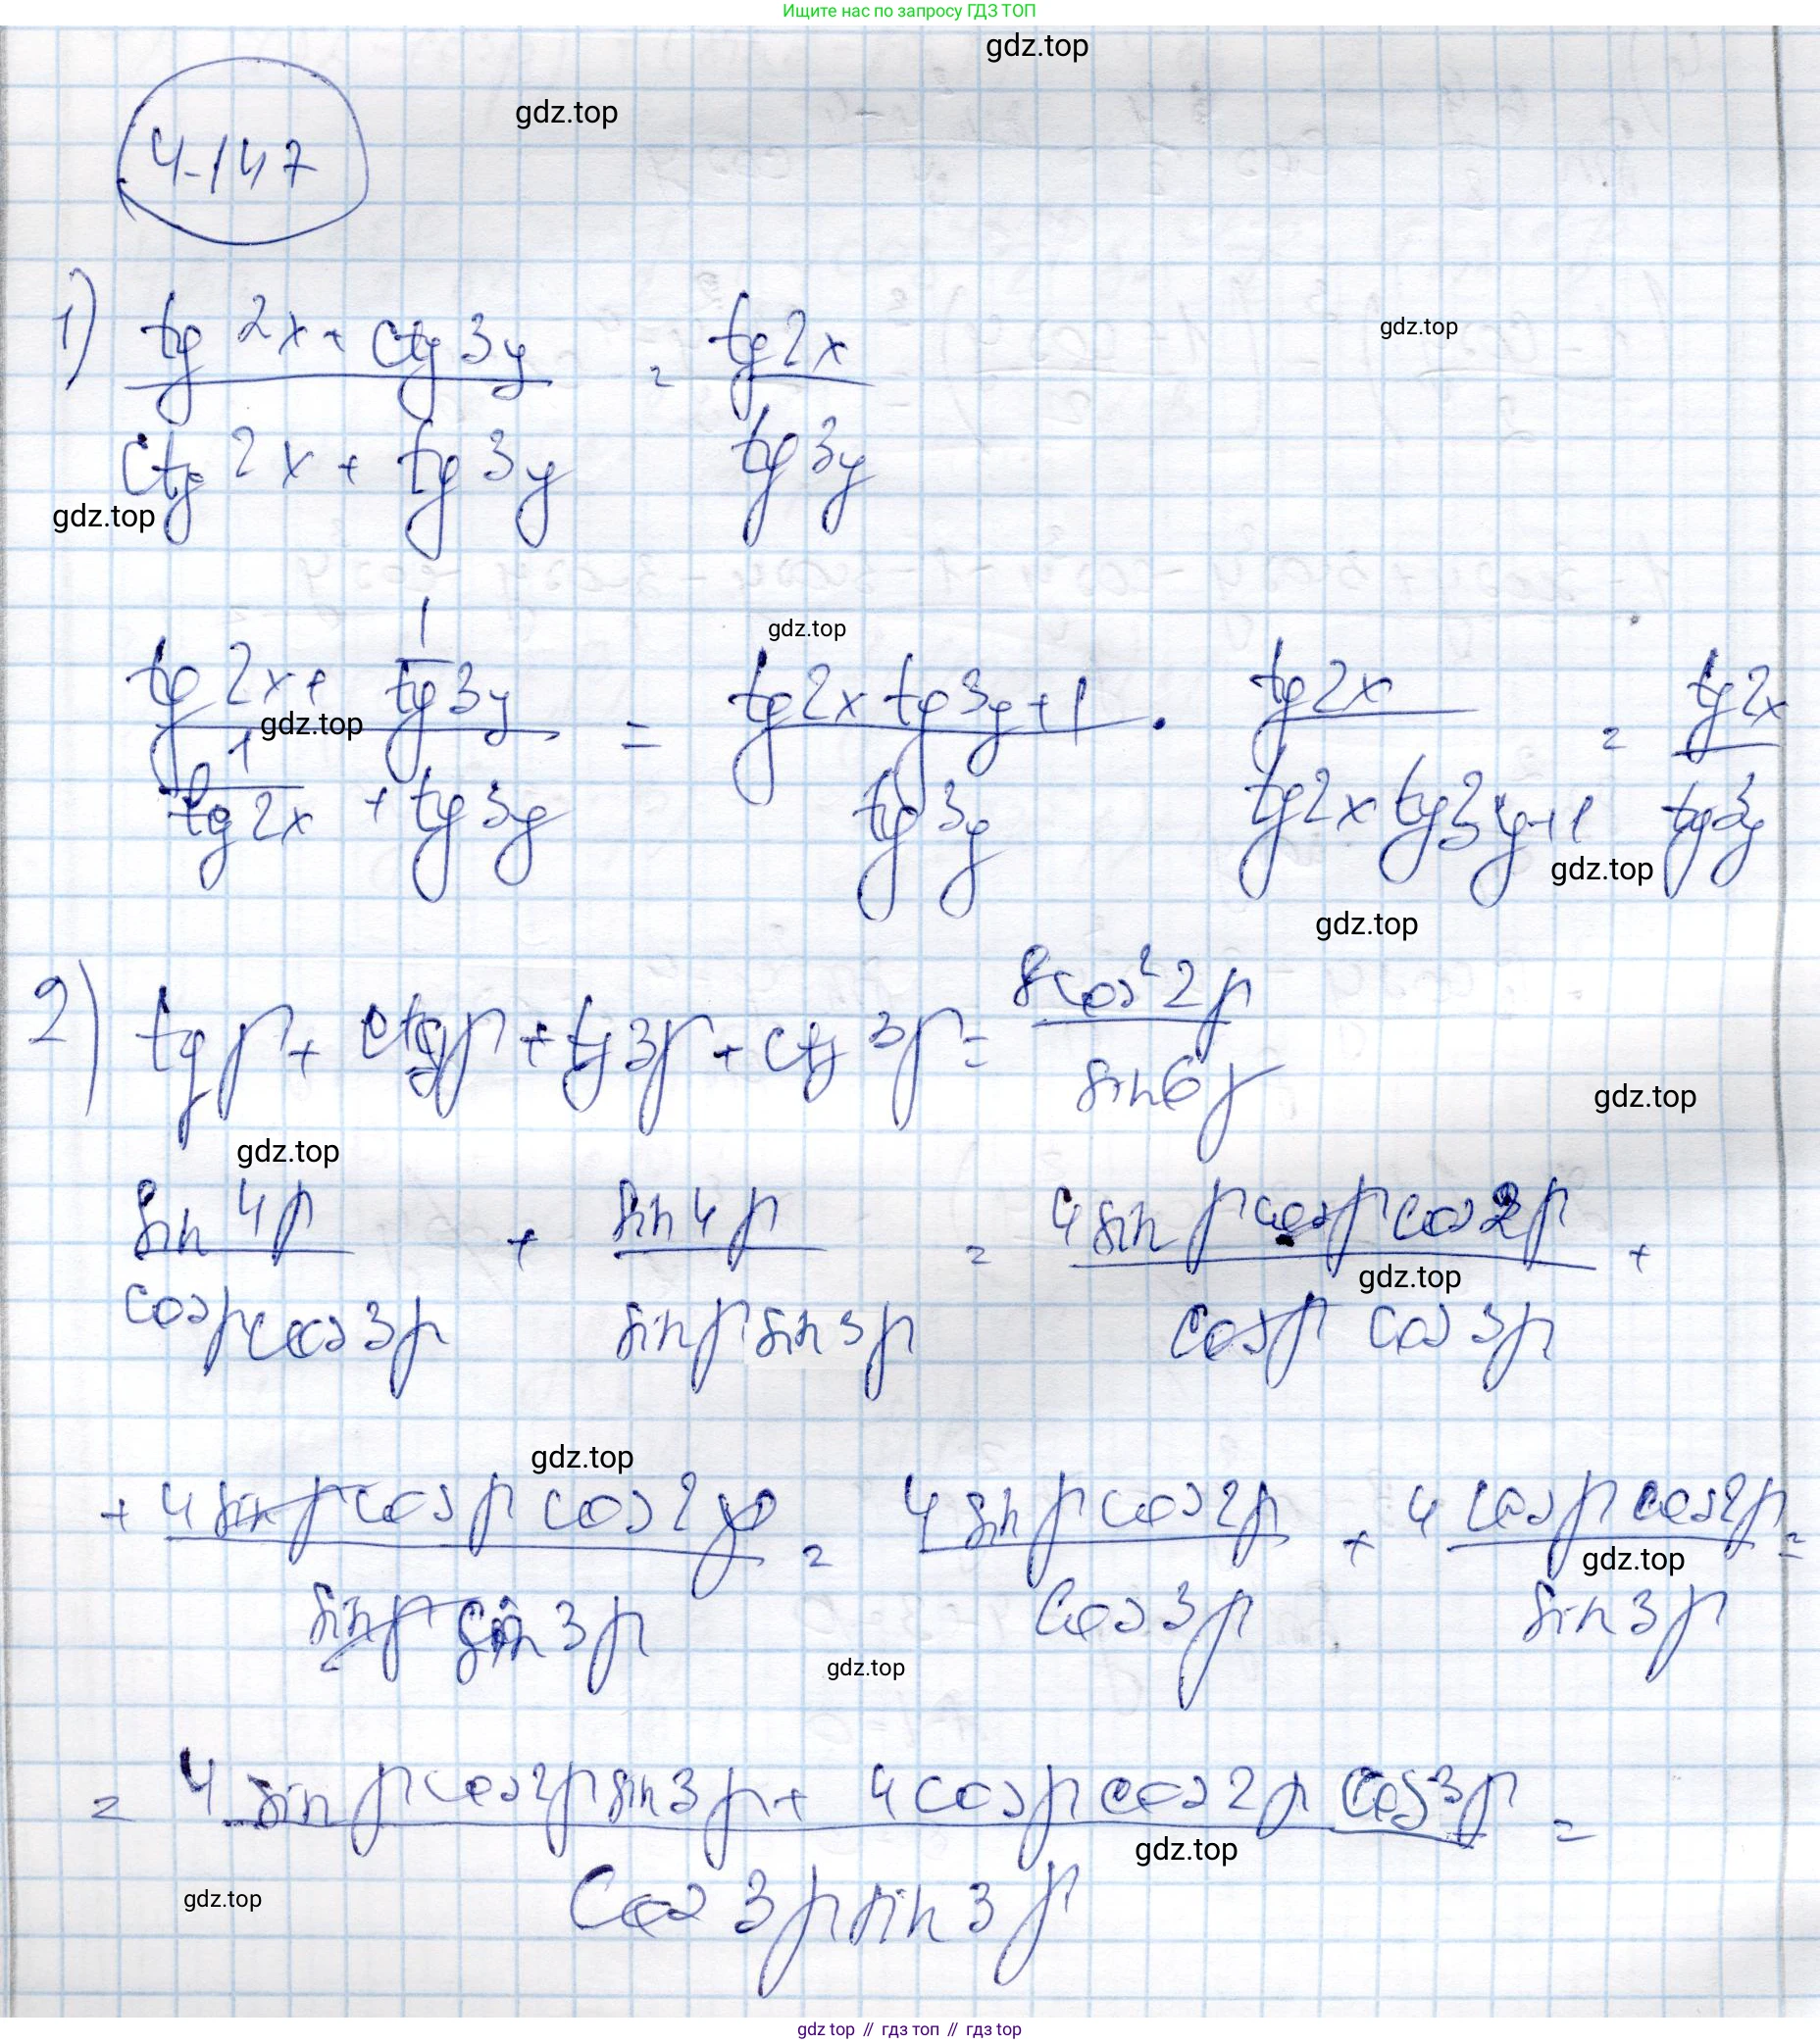 Ищите нас по запросу ГДЗ ТОП
gdz.top
gdz.top
4-147
1) (tg 2x + ctg 3y) / (ctg 2x + tg 3y) = tg 2x / tg 3y
gdz.top
gdz.top
gdz.top
(tg 2x + 1/tg 3y) / (1/tg 2x + tg 3y) = (tg 2x tg 3y + 1) / tg 3y · tg 2x / (tg 2x tg 3y + 1) = tg 2x / tg 3y
gdz.top
gdz.top
gdz.top
2) tg β + ctg β + tg 3β + ctg 3β = 8 cos² 2β / sin 6β
gdz.top
gdz.top
sin 4β / (cos β cos 3β) + sin 4β / (sin β sin 3β) = 4 sin β cos β cos 2β / (cos β cos 3β) +
gdz.top
gdz.top
+ 4 sin β cos β cos 2β / (sin β sin 3β) = 4 sin β cos 2β / cos 3β + 4 cos β cos 2β / sin 3β =
gdz.top
gdz.top
= (4 sin β cos 2β sin 3β + 4 cos β cos 2β cos 3β) / (cos 3β sin 3β) =
gdz.top
gdz.top
gdz top // гдз топ // gdz top